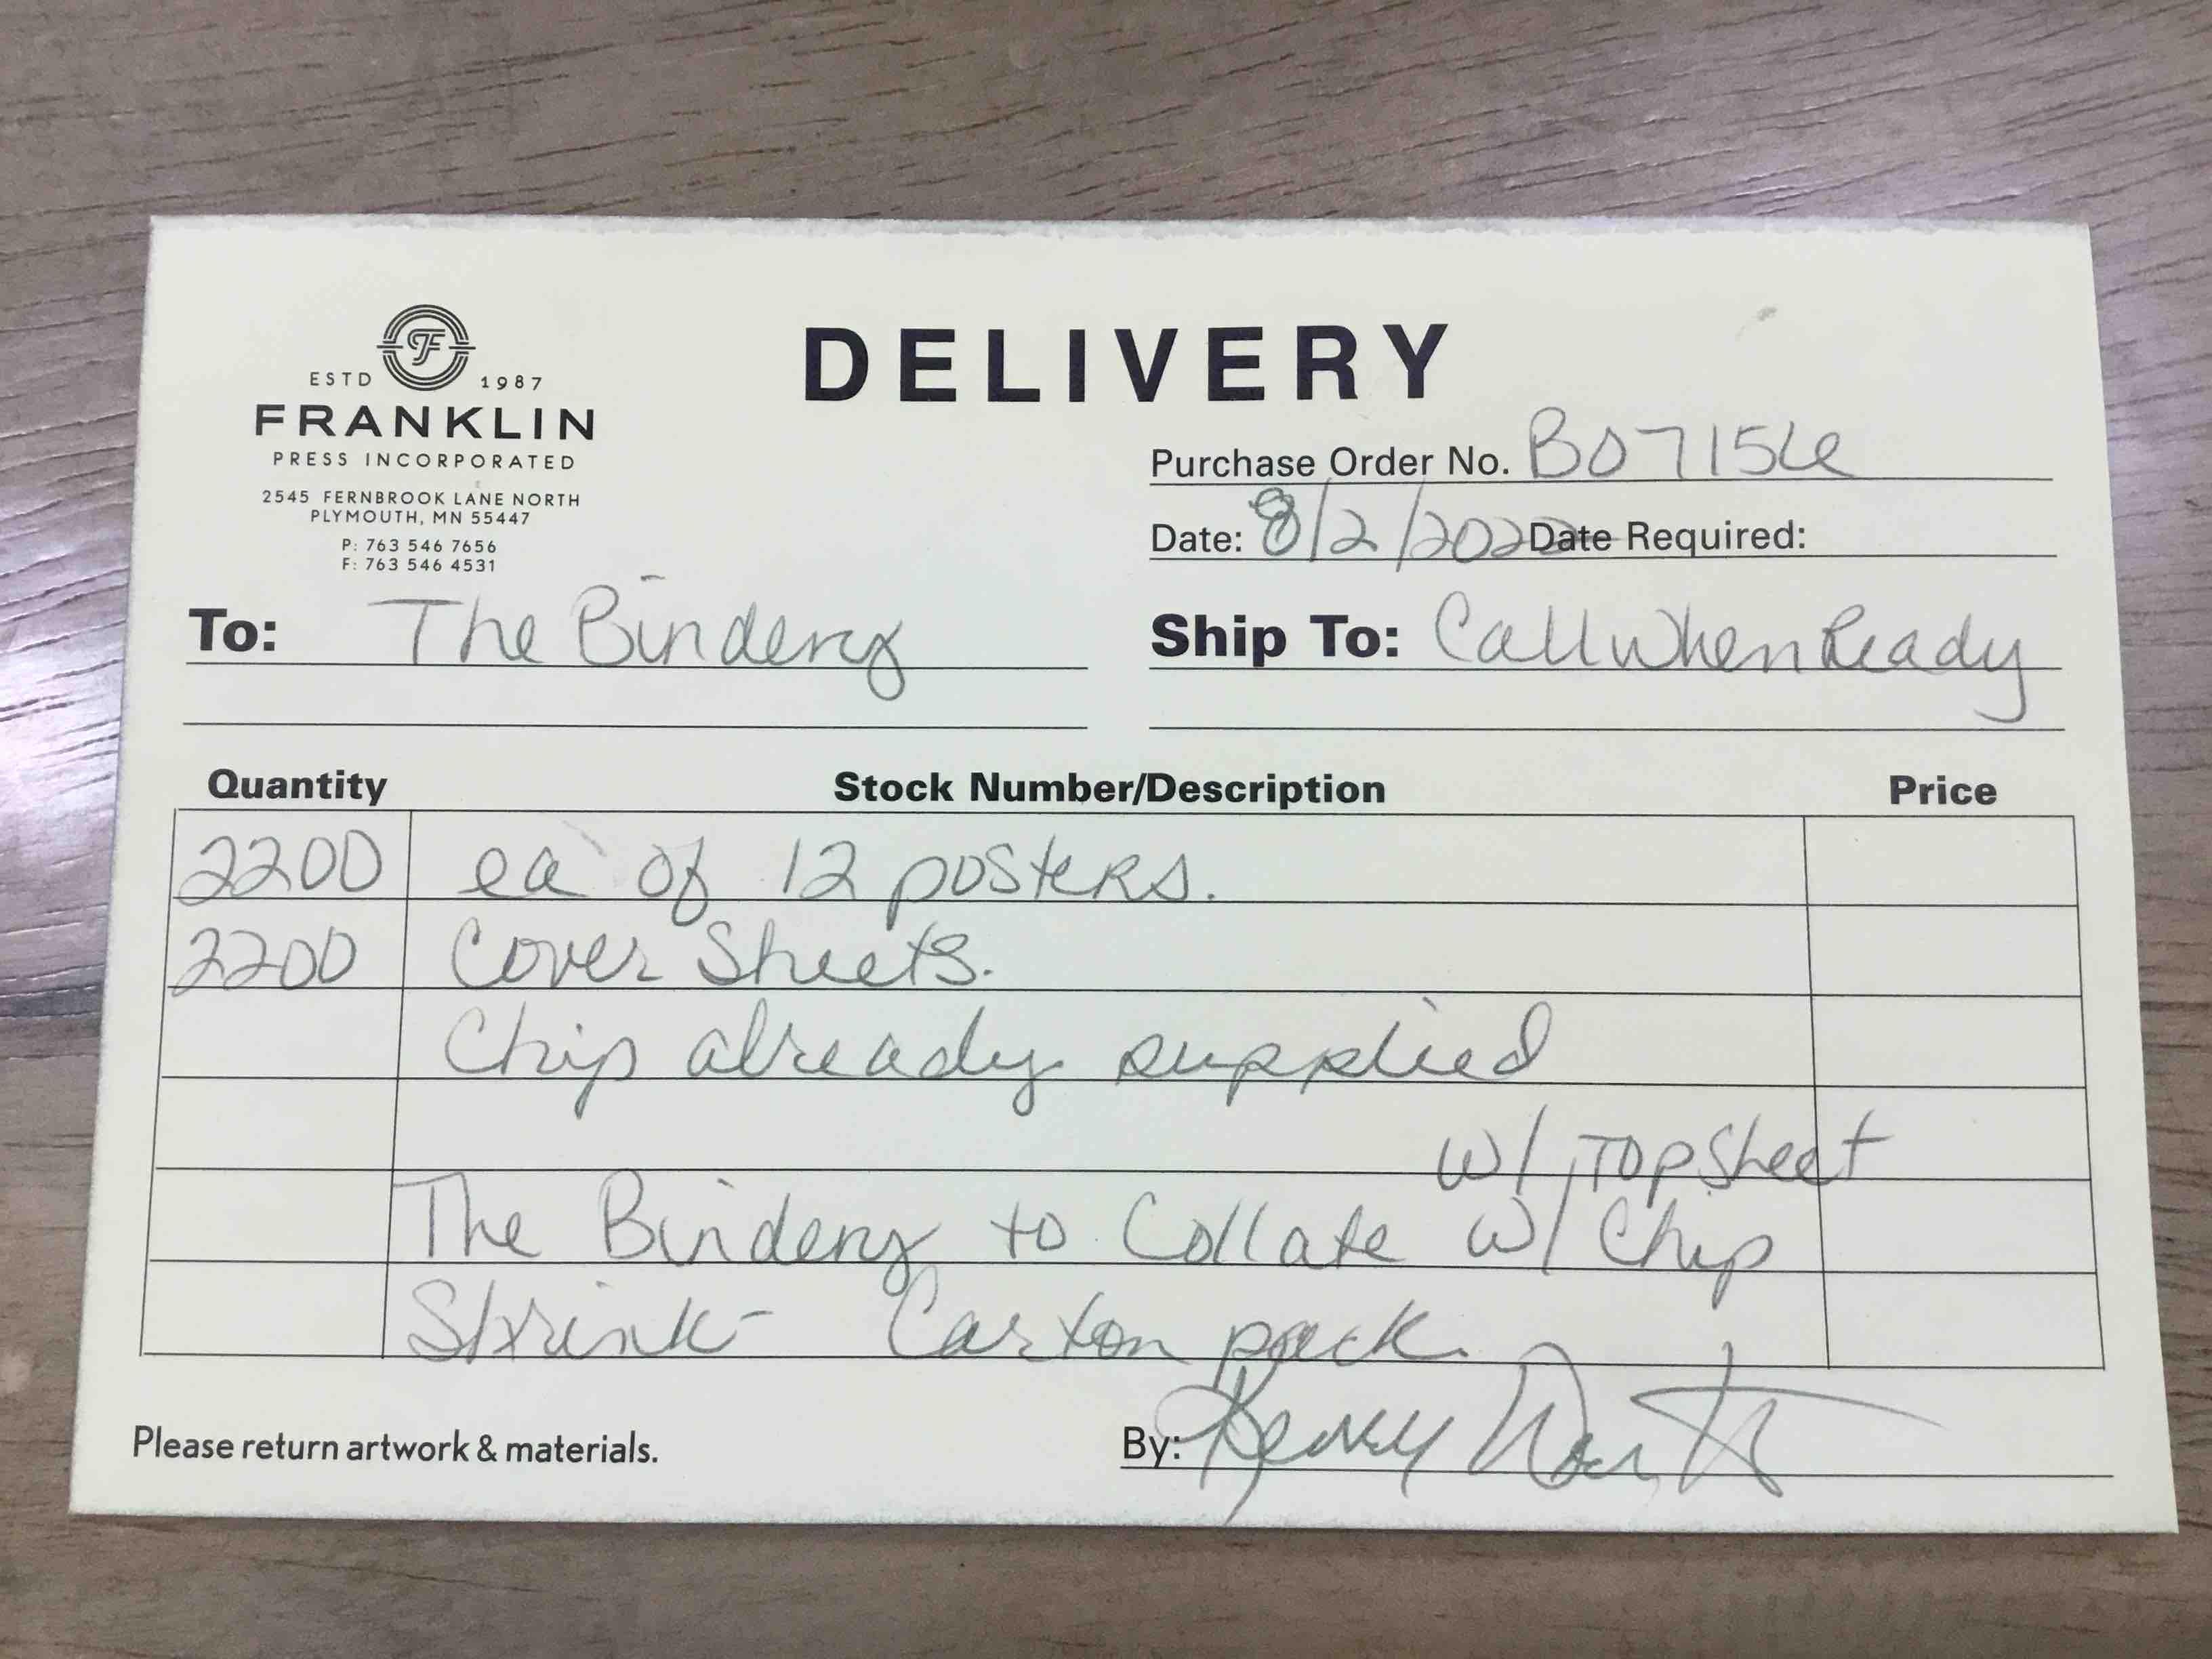 ESTD 1987
FRANKLIN
PRESS INCORPORATED
2545 FERNBROOK LANE NORTH
PLYMOUTH, MN 55447
P: 763 546 7656
F: 763 546 4531
DELIVERY
Purchase Order No.
Date: 8/2/2022 Date Required:
To: The Bindery
Ship To: Call When Ready
Quantity Stock Number/Description Price
2200 ea of 12 posters.
2200 Cover Sheets.
Chip already supplied
w/ Top Sheet
The Bindery to Collate w/ Chip
Shrink - Carton pack.
Please return artwork & materials.
By: